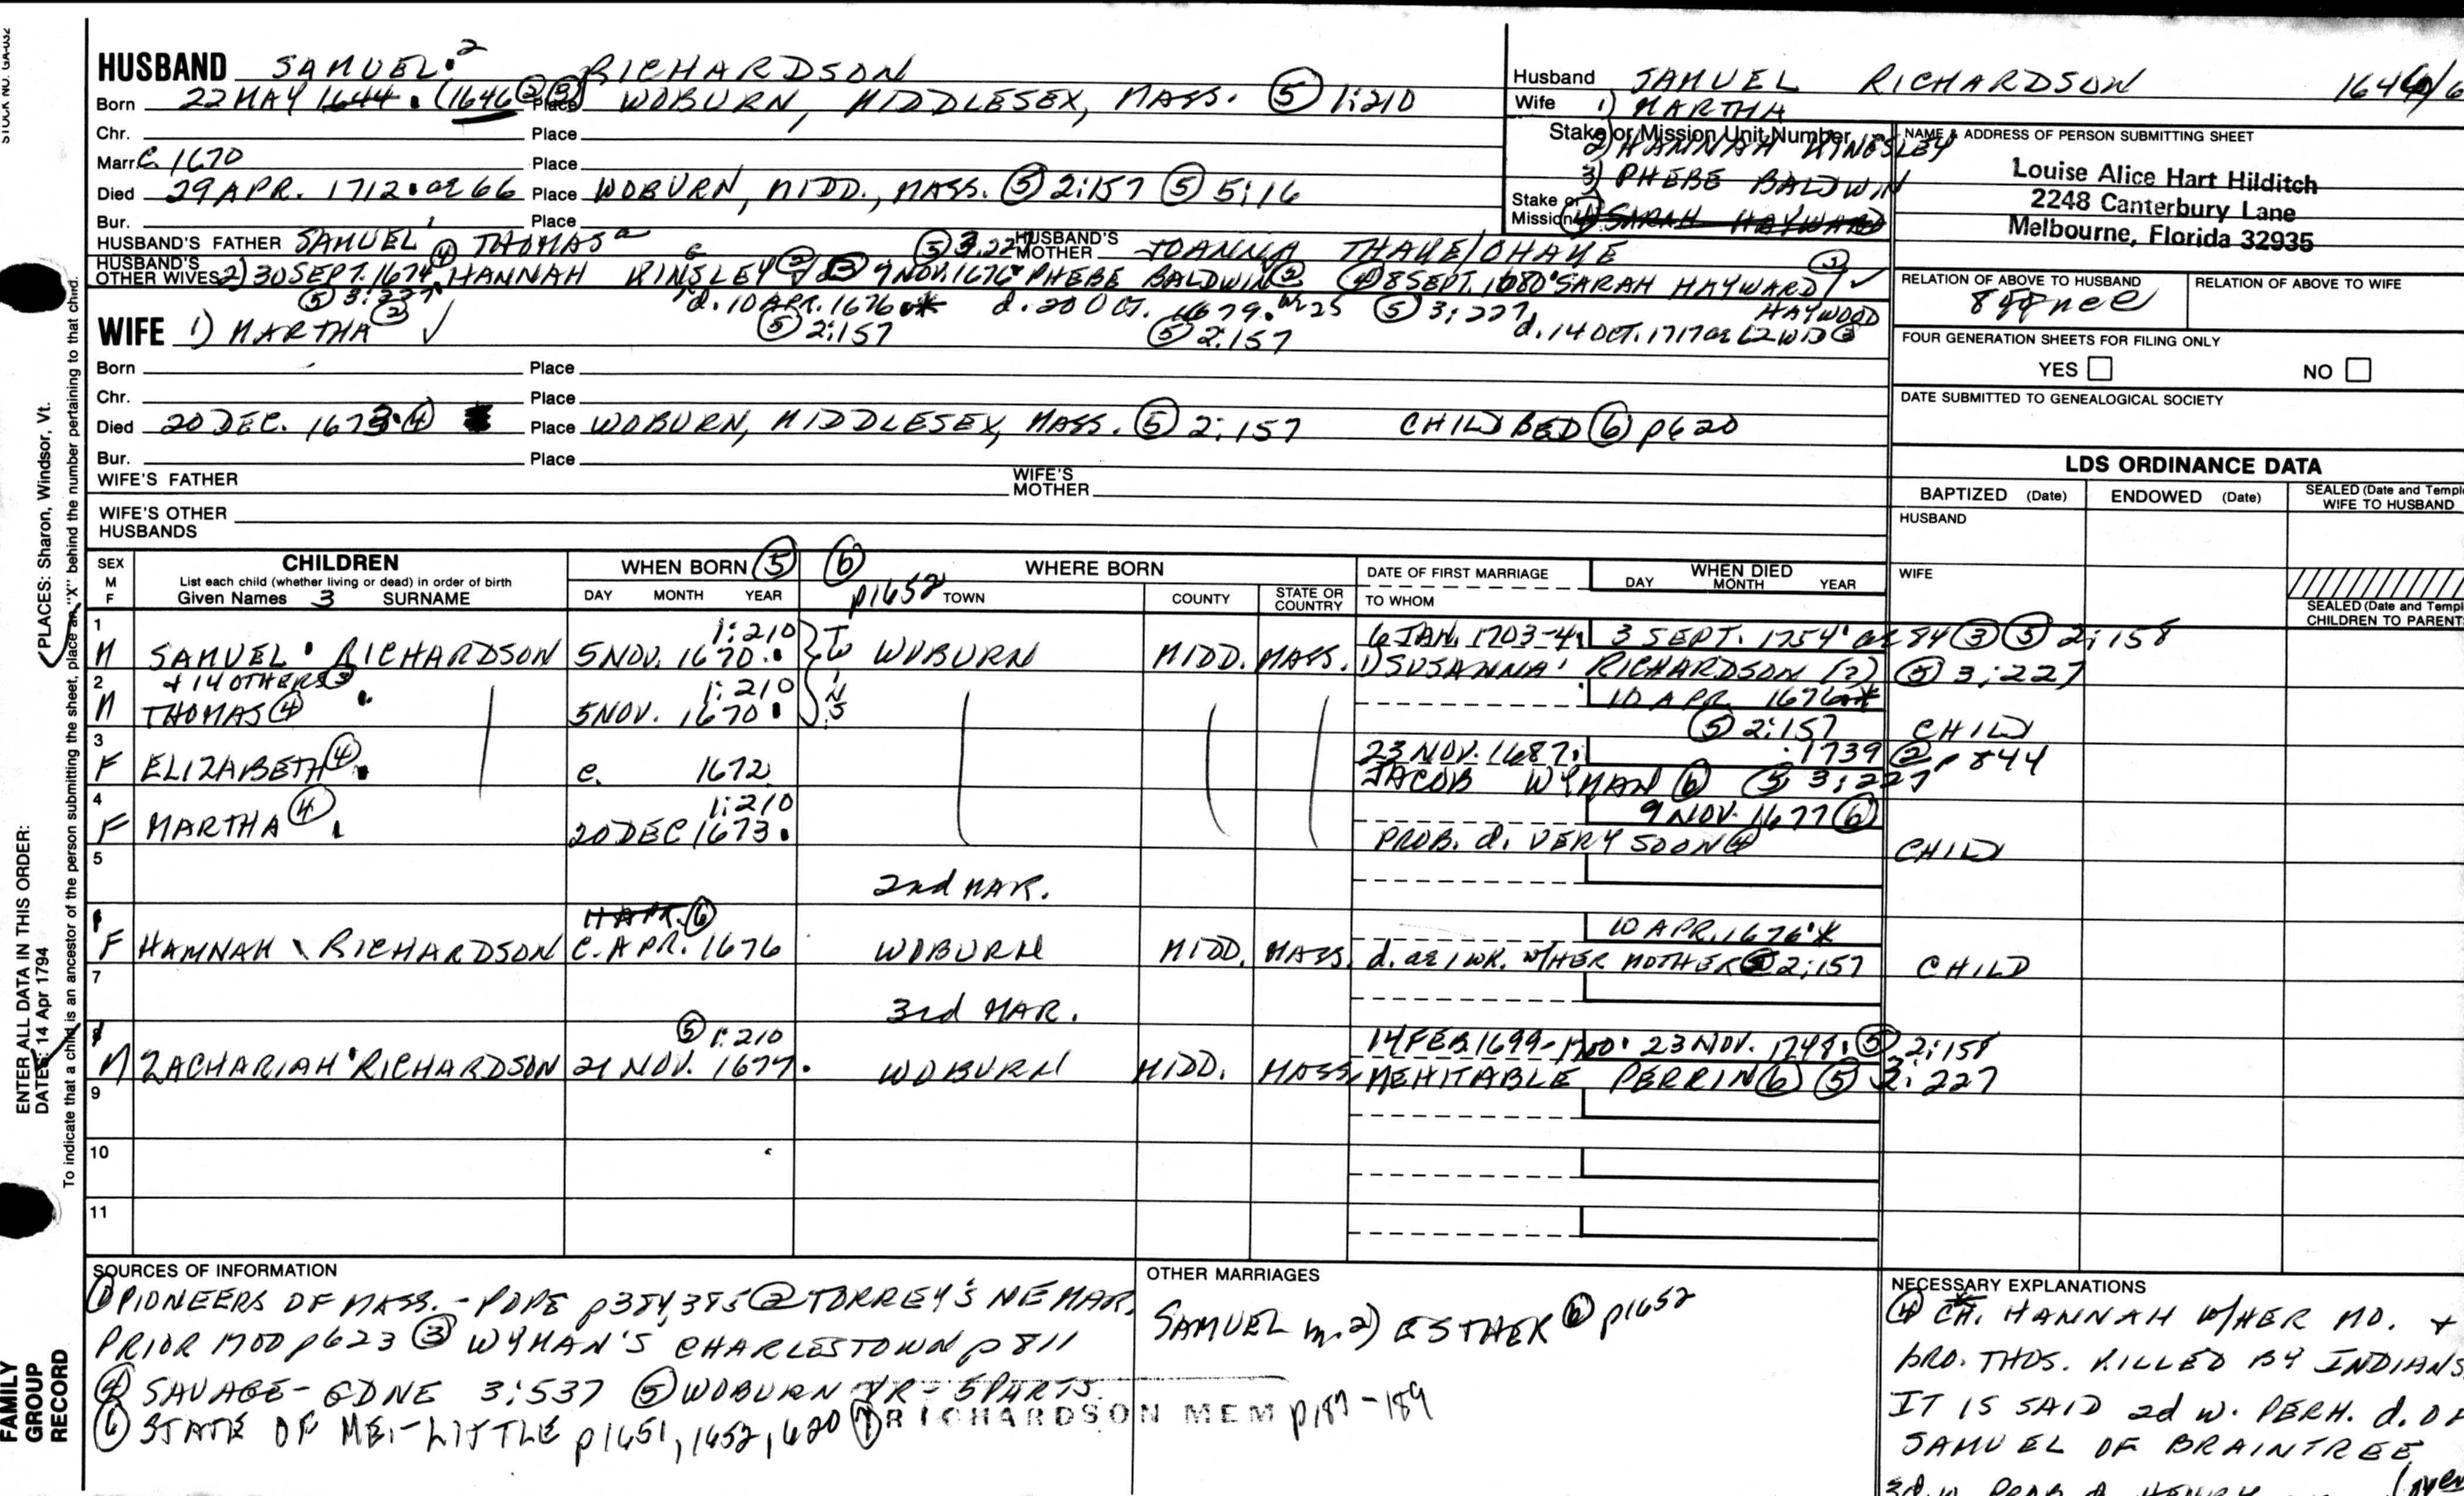 HUSBAND SAMUEL 2 RICHARDSON
Born 22 MAY 1644. (1646 ② ③ Place WOBURN, MIDDLESEX, MASS. ⑤ 1:210
Chr. Place
Marr. C. 1670 Place
Died 29 APR. 1712. ae 66 Place WOBURN, MIDD., MASS. ⑤ 2:157 ⑤ 5:16
Bur. Place
HUSBAND'S FATHER SAMUEL 1 THOMAS a HUSBAND'S MOTHER JOANNA THAKE/CHAKE
HUSBAND'S OTHER WIVES 2) 30 SEPT. 1674 ④ HANNAH KINGSLEY ② ③ 9 NOV. 1676 PHEBE BALDWIN ② ④ 8 SEPT. 1680 SARAH HAYWARD ③
⑤ 3:227 d. 10 APR. 1676 * d. 20 OCT. 1679. ae 25 ⑤ 3:227 HAYWOOD
⑤ 2:157 ⑤ 2:157 d. 14 OCT. 1717 ae 62 WID ③
WIFE 1) MARTHA ②
Born Place
Chr. Place
Died 20 DEC. 1673. ④ Place WOBURN, MIDDLESEX, MASS. ⑤ 2:157 CHILDBED ⑥ p620
Bur. Place
WIFE'S FATHER WIFE'S MOTHER
WIFE'S OTHER HUSBANDS
Husband SAMUEL RICHARDSON
Wife 1) MARTHA
Stake or Mission Unit Number
2) HANNAH KINGSLEY
3) PHEBE BALDWIN
Stake or Mission 4) SARAH HAYWARD
NAME & ADDRESS OF PERSON SUBMITTING SHEET
Louise Alice Hart Hilditch
2248 Canterbury Lane
Melbourne, Florida 32935
RELATION OF ABOVE TO HUSBAND RELATION OF ABOVE TO WIFE
FOUR GENERATION SHEETS FOR FILING ONLY
YES NO
DATE SUBMITTED TO GENEALOGICAL SOCIETY
LDS ORDINANCE DATA
BAPTIZED (Date) ENDOWED (Date) SEALED (Date and Temple) WIFE TO HUSBAND
HUSBAND
WIFE
SEALED (Date and Temple) CHILDREN TO PARENTS
SEX M F CHILDREN
List each child (whether living or dead) in order of birth
Given Names 3 SURNAME
WHEN BORN ⑤ ⑥ p1652 WHERE BORN
DAY MONTH YEAR TOWN COUNTY STATE OR COUNTRY
DATE OF FIRST MARRIAGE TO WHOM
WHEN DIED DAY MONTH YEAR
1 1:210 6 JAN. 1703-4 3 SEPT. 1754 ae 84 ③ ⑤ 2:158
M SAMUEL RICHARDSON 5 NOV. 1670 WOBURN MIDD. MASS. 1) SUSANNA RICHARDSON (?) ⑤ 3:227
2 + 14 OTHERS ③ 1:210 10 APR. 1676 *
M THOMAS ④ 5 NOV. 1670 ⑤ 2:157 CHILD
3 23 NOV. 1687 1739 ② p844
F ELIZABETH ④ c. 1672 JACOB WYMAN ⑥ ⑤ 3:227
4 1:210 9 NOV. 1677 ⑥
F MARTHA ④ 20 DEC 1673 PROB. d. VERY SOON ④ CHILD
5 2nd MAR.
⑥ 10 APR. 1676 *
F HANNAH RICHARDSON C. APR. 1676 WOBURN MIDD. MASS. d. ae 1 WK. W/HER MOTHER ⑤ 2:157 CHILD
7 3rd MAR.
8 ⑤ 1:210 14 FEB 1699-1700 23 NOV. 1748 ⑤ 2:158
M ZACHARIAH RICHARDSON 21 NOV. 1677 WOBURN MIDD. MASS. MEHITABLE PERRIN ⑥ ⑤ 3:227
9
10
11
SOURCES OF INFORMATION
① PIONEERS OF MASS. - POPE p384,385 ② TORREY'S NE MAR.
PRIOR 1700 p623 ③ WYMAN'S CHARLESTOWN p811
④ SAVAGE - GDNE 3:537 ⑤ WOBURN VR - 5 PARTS
⑥ STATE OF ME. - LITTLE p1651, 1652, 620 ⑦ RICHARDSON MEM p187-189
OTHER MARRIAGES
SAMUEL m. 2) ESTHER ⑥ p1652
NECESSARY EXPLANATIONS
④ * CH. HANNAH W/HER MO. +
BRO. THOS. KILLED BY INDIANS
IT IS SAID 2d W. PERH. d. OF
SAMUEL OF BRAINTREE
3d. W. PROB. d. HENRY (over
STOCK NO. GA-032
ENTER ALL DATA IN THIS ORDER:
DATES: 14 Apr 1794
PLACES: Sharon, Windsor, Vt.
To indicate that a child is an ancestor of the person submitting the sheet, place an "X" behind the number pertaining to that child.
FAMILY GROUP RECORD